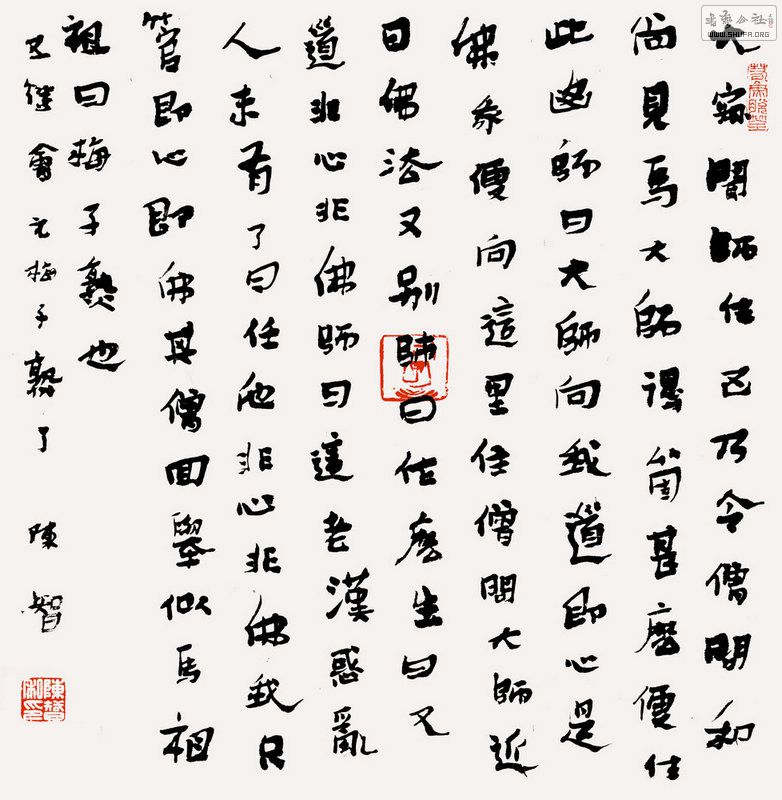 書法公社
WWW.SHUFA.ORG
大寂聞師住已乃令僧問和
尚見馬大師得箇甚麼便住
此幽師曰大師向我道即心是
佛我便向這里住僧問大師近
日佛法又別師曰作麼生曰又
道非心非佛師曰這老漢惑亂
人未有了日任他非心非佛我只
管即心即佛其僧回舉似馬祖
祖曰梅子熟也
五燈會元梅子熟了 陳智